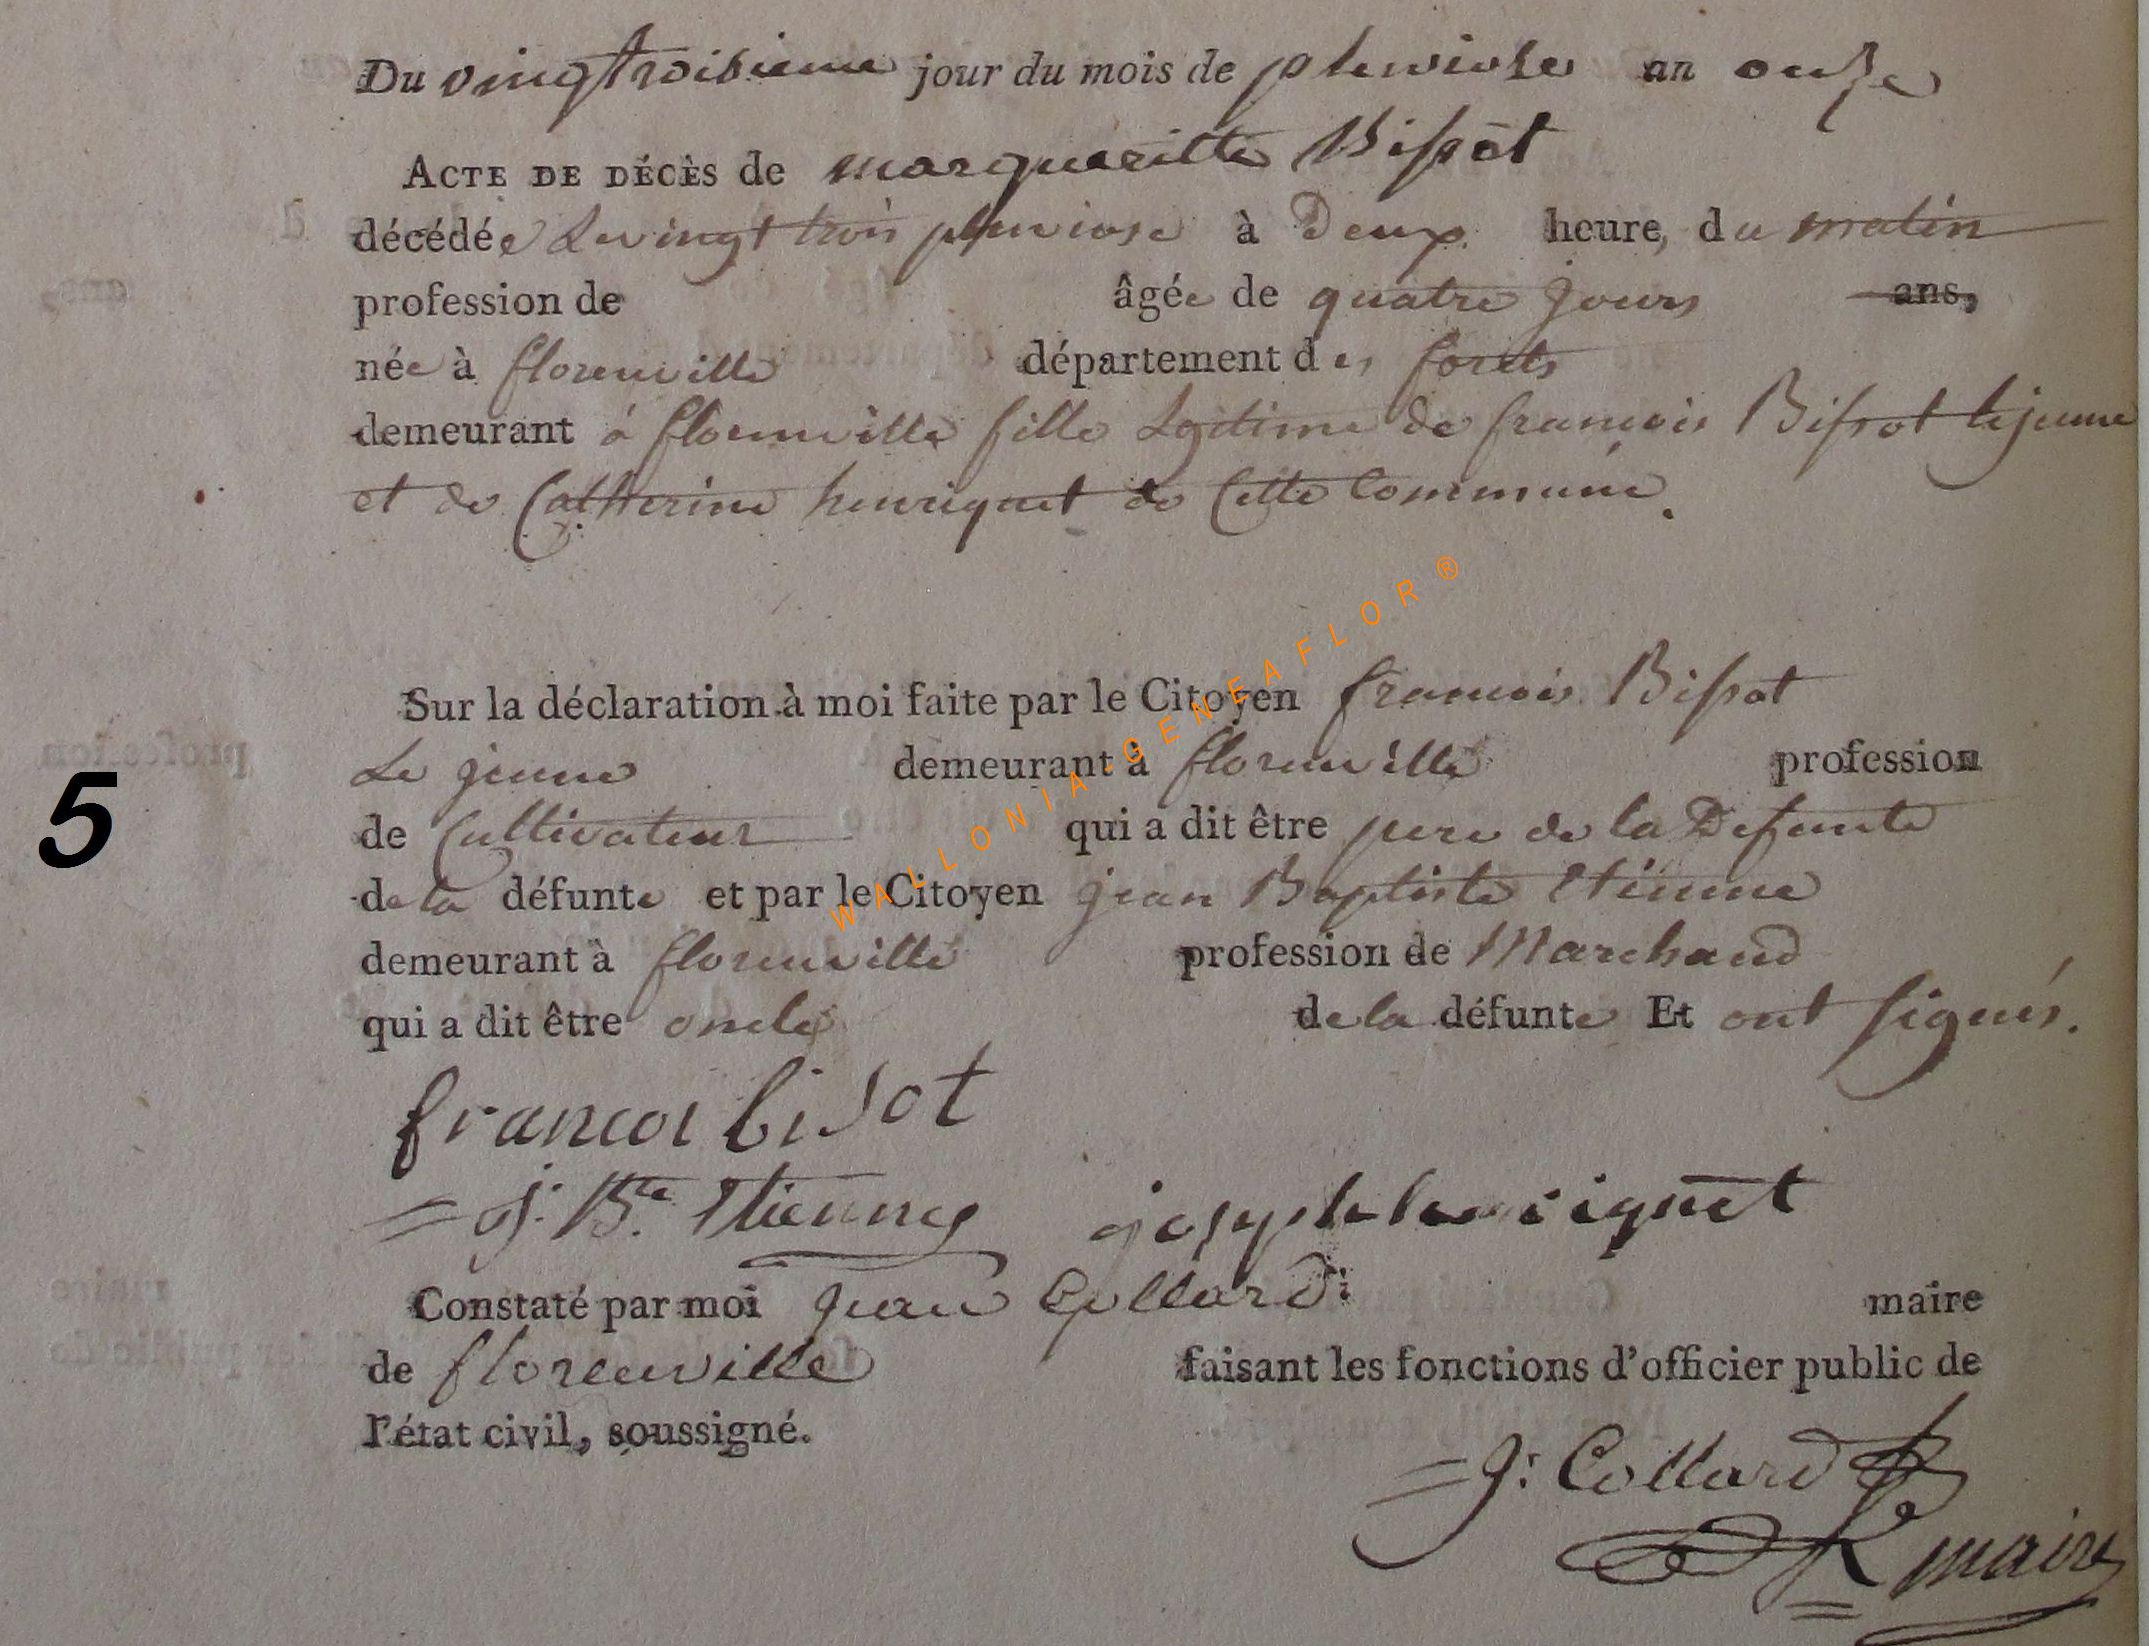 Du vingtroisieme jour du mois de pluviose an onze
ACTE DE DÉCÈS de margueritte Bissot
décédée Le vingt trois pluviose à Deux heure, du matin
profession de âgée de quatre jours ans,
née à florenville département des forets
demeurant à florenville fille Legitime de francois Bissot lejeune
et de Catherine henriquet de Cette Commune.
Sur la déclaration à moi faite par le Citoyen francois Bissot
Le jeune demeurant à florenville profession
de Cultivateur qui a dit être pere de la Defunte
de la défunte et par le Citoyen jean Baptiste Etienne
demeurant à florenville profession de Marchand
qui a dit être oncle de la défunte Et ont signés.
francoi bisot
= J: Bte. Etienne josephhenriquet
Constaté par moi jean Collard: maire
de florenville faisant les fonctions d'officier public de
l'état civil, soussigné.
= J: Collard
maire
5
WALLONIA GENEAFLOR ®